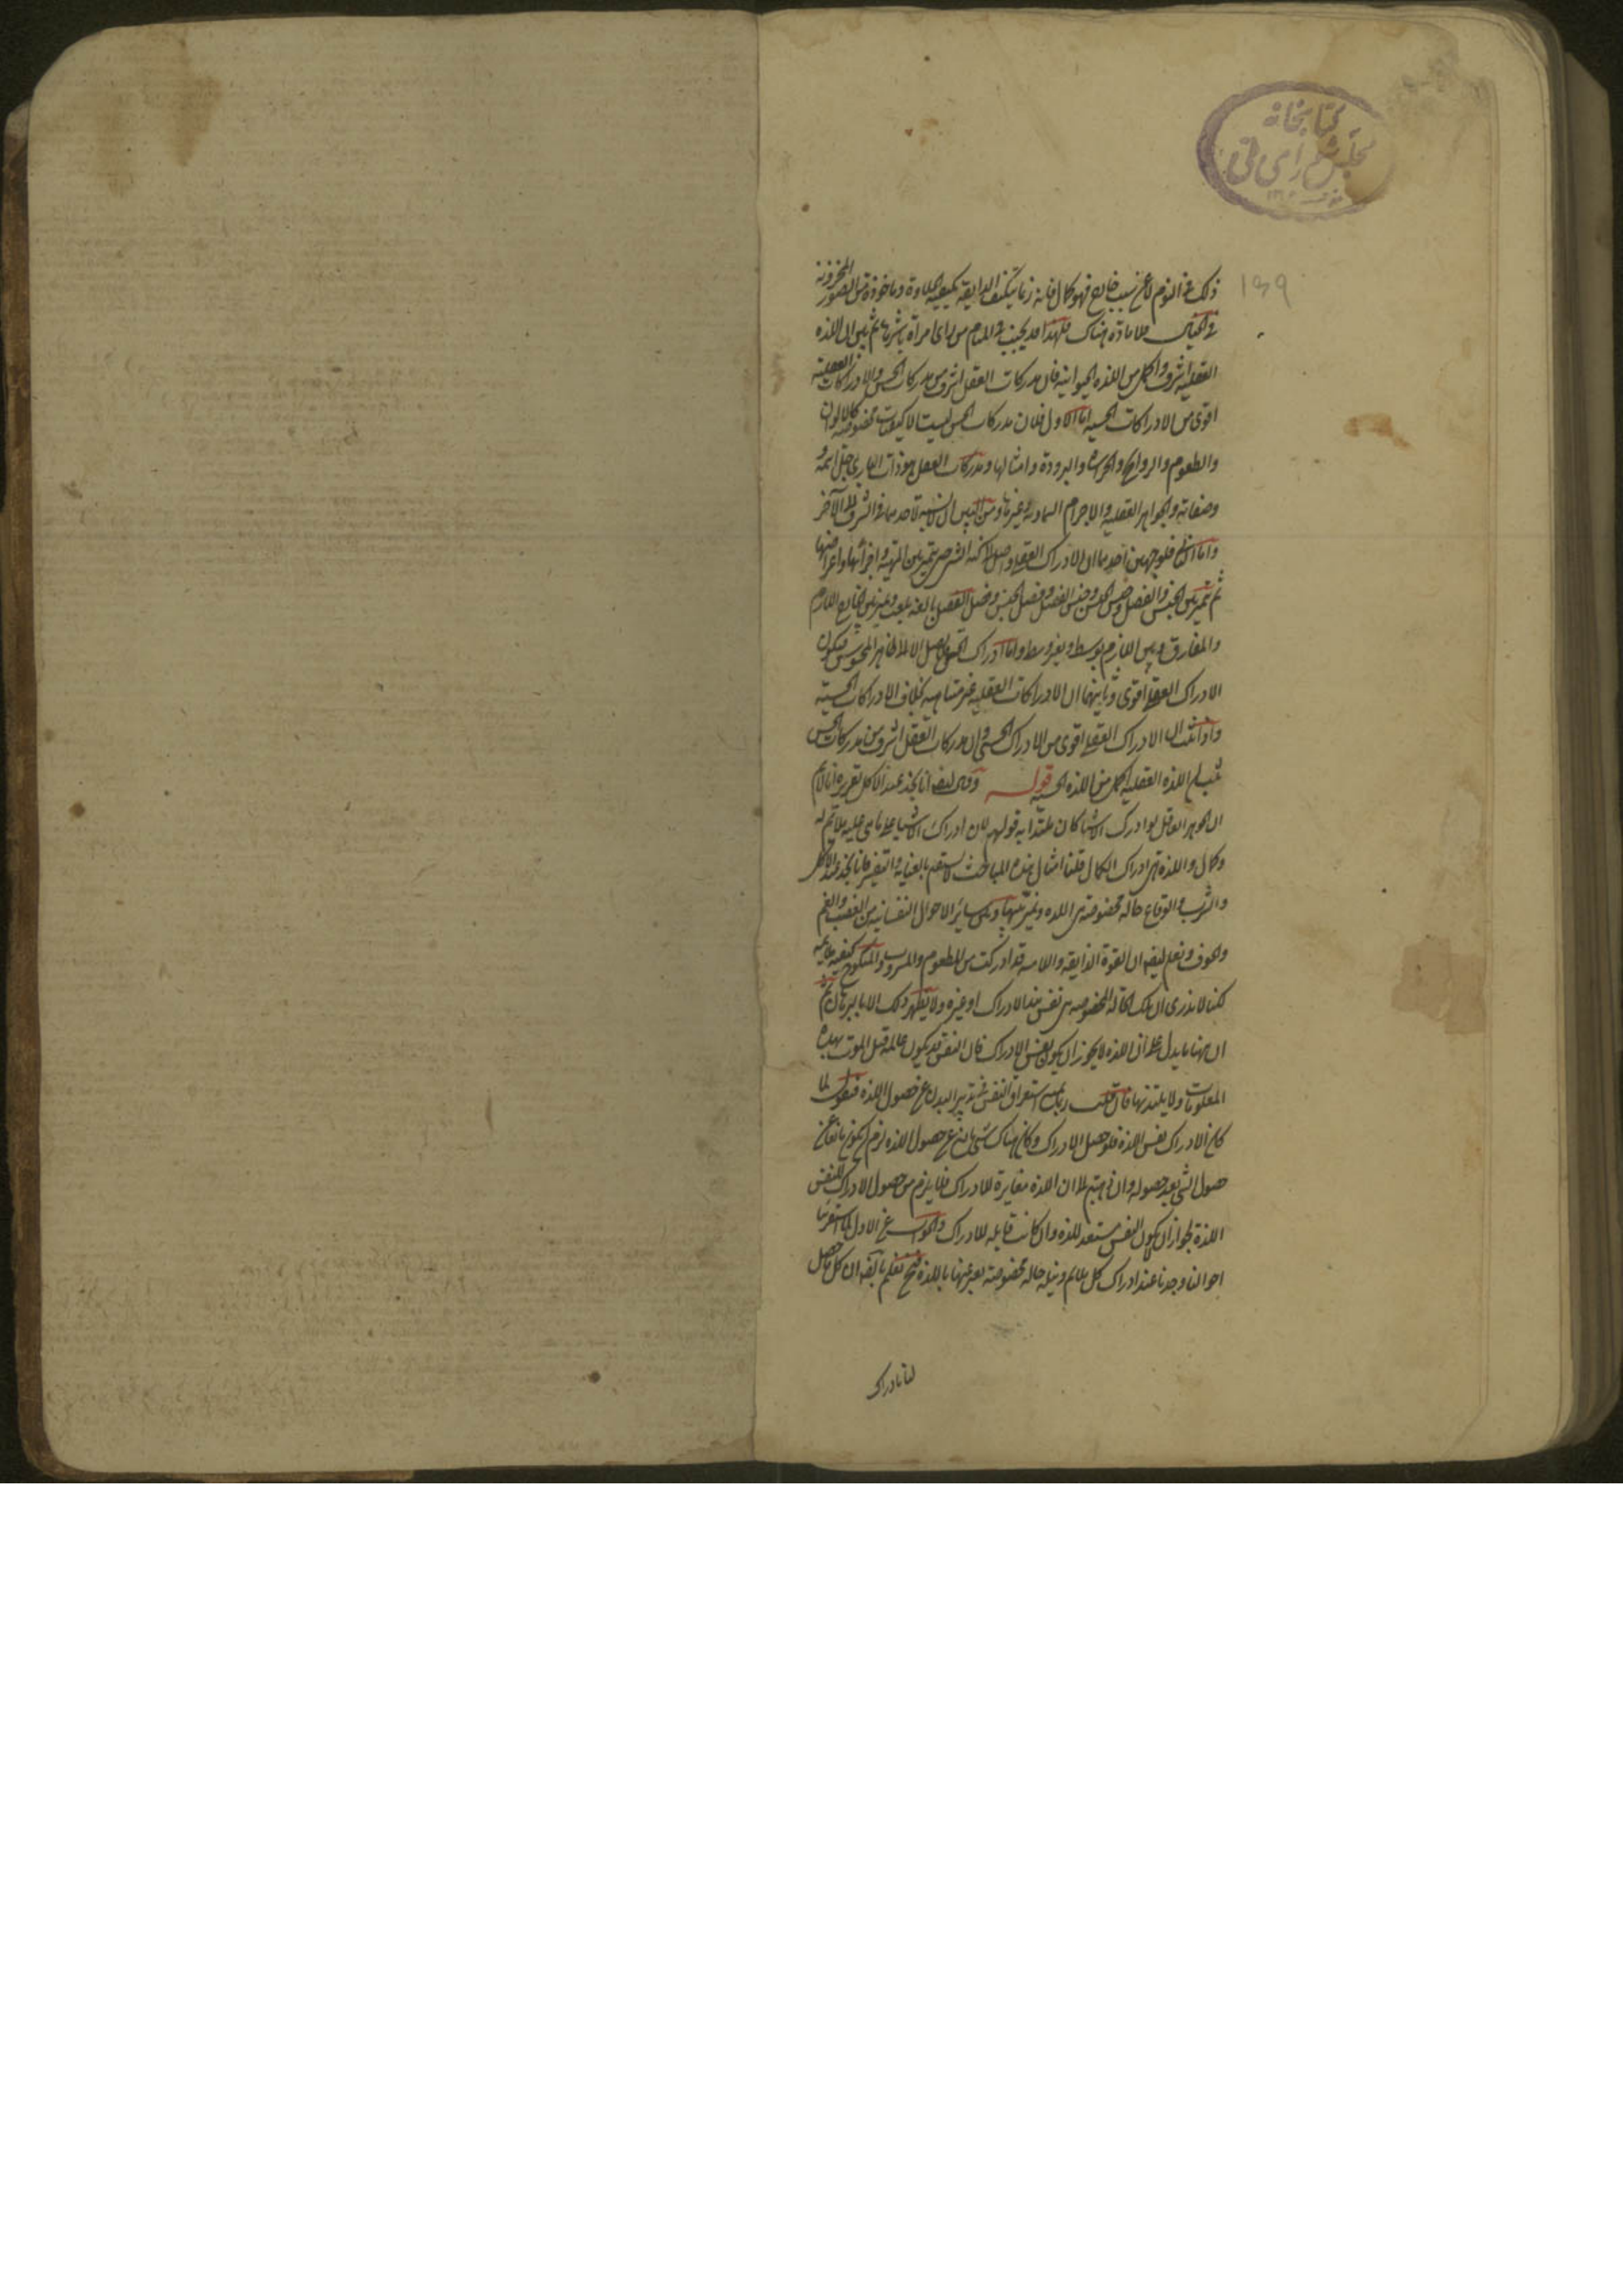 كتابخانه
مجلس شورای ملی
۱۳۹
ذلك في النوم لا عن سبب خارج فهو كمال فانه ربما يتكيف الذايقة بكيفية الحلاوة وماخوذة من الصور المخزونة
في الخيال فلا مادة هناك فلهذا قد يجنب في المنام من راى امراة باشرها ثم بين ان اللذه
العقلية اشرف واكمل من اللذه الحيوانية فان مدركات العقل اشرف من مدركات الحس والادراكات العقلية
اقوى من الادراكات الحسية اما الاول فلان مدركات الحس ليست الا كيفيات مخصوصة كالالوان
والطعوم والروايح والحرارة والبرودة وامثالها ومدركات العقل هو ذات الباري جل اسمه و
وصفاته والجواهر العقلية والاجرام السماوية وغيرها ومن البين ان لا نسبة لاحدهما في الشرف الى الآخر
واما الثاني فلوجهين احدهما ان الادراك العقلي واصل الى كنه الشي حتى يتميز بين الماهية واجزائها واعراضها
ثم تميز بين الجنس والفصل وجنس الجنس وجنس الفصل وفصل الجنس وفصل الفصل بالغة ما بلغت وتميز بين الخارج اللازم
والمفارق وبين اللازم بوسط وبغير وسط واما ادراك الحس فلا يصل الا الى ظاهر المحسوس فيكون
الادراك العقلي اقوى وثانيهما ان الادراكات العقلية غير متناهية بخلاف الادراكات الحسية
واذا ثبت ان الادراك العقلي اقوى من الادراك الحسي وان مدركات العقل اشرف من مدركات الحس
ثبت ان اللذه العقلية اكمل من اللذه الحسية قوله وقال ايضا انا نجد عند الاكل تقريره انا لا نم
ان الجوهر العاقل لو ادرك الاشيا كان ملتذا به قولهم لان ادراك الاشيا على ما هي عليه ملايم له
وكمال واللذه هي ادراك الكمال قلنا امثال هذه المباحث لا يستقيم بالعناية والتفسير فانا نجد عند الاكل
والشرب والوقاع حالة مخصوصة هي اللذه ونميز بينها وبين ساير الاحوال النفسانية من الغضب والغم
والخوف ونعلم ايضا ان القوة الذايقة واللامسة قد ادركت من المطعوم والمشروب والمنكوح كيفية ملايمة
لكنا لا ندري ان تلك الحالة المخصوصة هي نفس هذا الادراك او غيره ولا يظهر ذلك الا بالبرهان ثم
ان هاهنا ما يدل على ان اللذه لا يجوز ان يكون نفس الادراك فان النفس قد يكون عالمة قبل الموت بهذه
المعلومات ولا يلتذ بها فان قلت ربما يمنع استغراق النفس في تدبير البدن عن حصول اللذه فنقول لما
كان الادراك نفس اللذه فلو حصل الادراك وكان هناك شي مانع عن حصول اللذه لزم ان يكون مانعا عن
حصول الشي بعد حصوله وان ذهبتم الى ان اللذه مغايرة للادراك فلا يلزم من حصول الادراك للنفس
اللذة لجواز ان لا يكون النفس مستعد للذه وان كانت قابلة للادراك والجواب عن الاول لما استقرينا
احوالنا وجدنا عند ادراك كل ملايم ونيله حالة مخصوصة يعبر عنها باللذه فنحن نعلم بالضرورة ان كل ما حصل
لنا ادراك